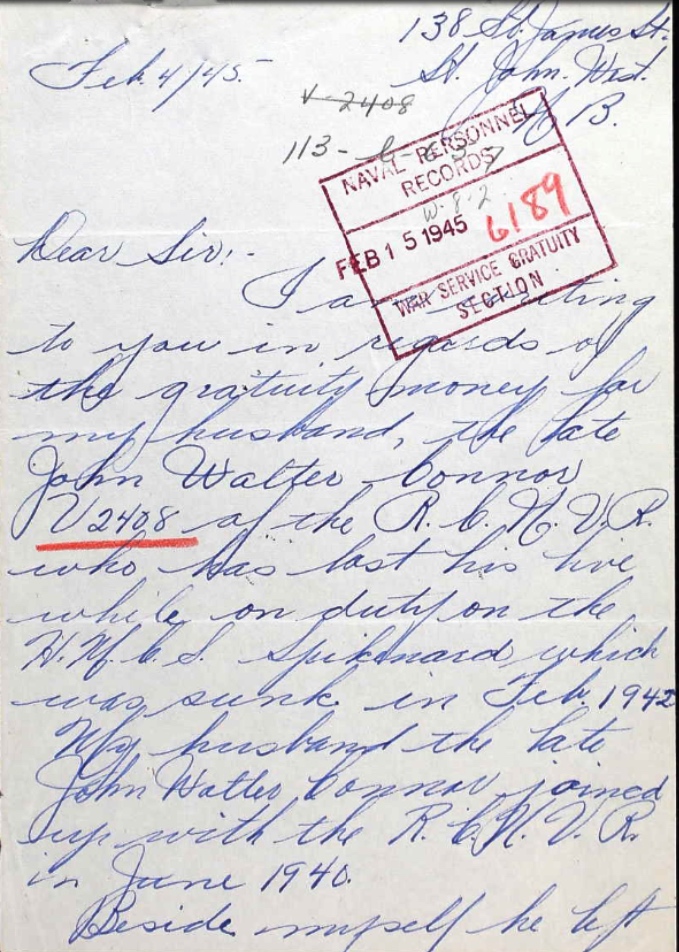 138 St. James St.
Feb. 4/45.
St. John. West.
N. B.
V-2408
113-
NAVAL PERSONNEL
RECORDS
W-8-2
FEB 15 1945 6189
WAR SERVICE GRATUITY
SECTION
Dear Sir:-
I am writing
to you in regards of
the gratuity money for
my husband, the late
John Walter Connor
V2408 of the R. C. N. V. R.
who has lost his live
while on duty on the
H. M. C. S. Spikenard which
was sunk in Feb. 1942
My husband the late
John Walter Connor joined
up with the R. C. N. V. R.
in June 1940.
Beside myself he left